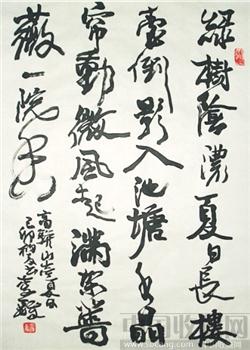 綠樹陰濃夏日長樓
臺倒影入池塘水晶
帘動微風起滿架薔
薇一院香
高駢山亭夏日
己卯